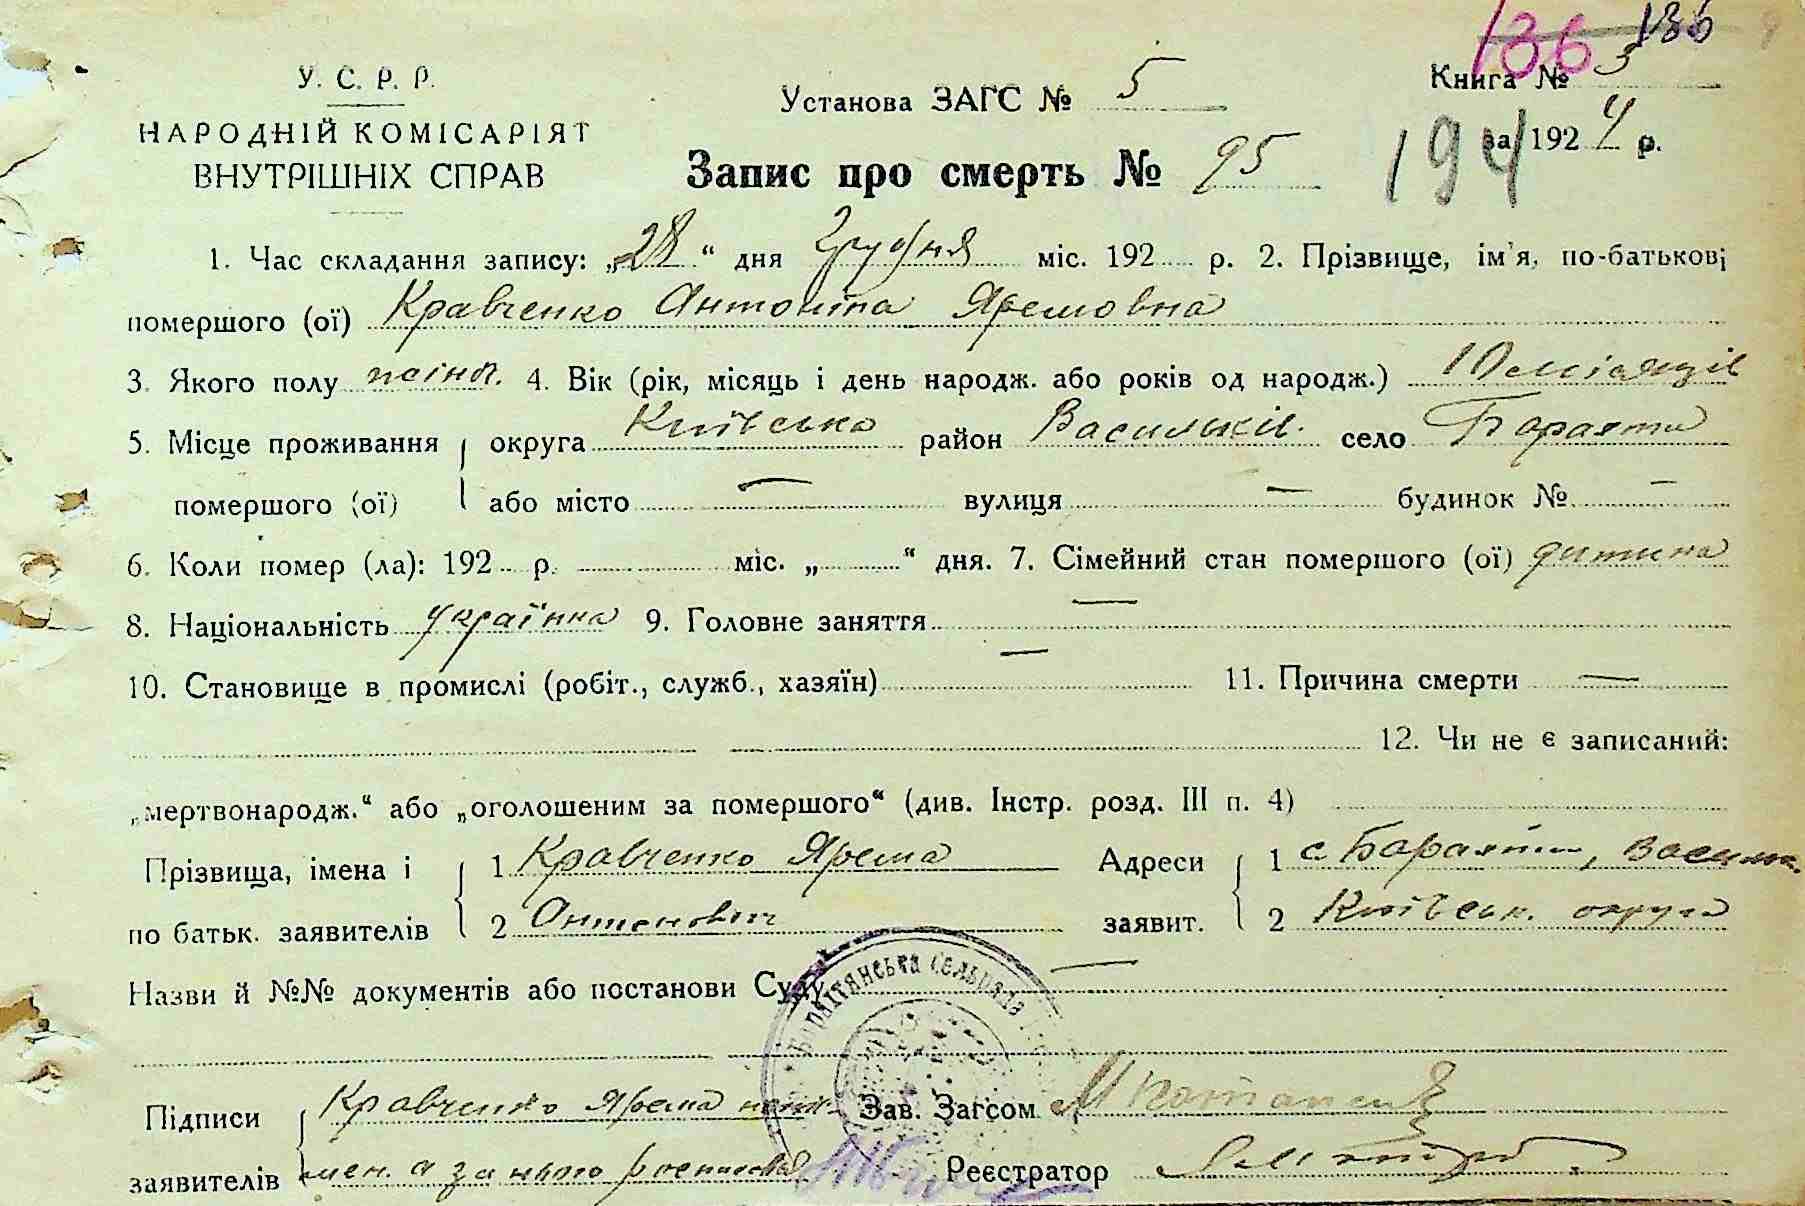 136 136
У. С. Р. Р.
НАРОДНІЙ КОМІСАРІЯТ
ВНУТРІШНІХ СПРАВ
Установа ЗАГС № 5
Книга № 3
за 1924 р.
194
Запис про смерть № 95
1. Час складання запису: „28“ дня Грудня міс. 192 р. 2. Прізвище, ім'я, по-батькові
помершого (ої) Кравченко Антоніна Яремовна
3. Якого полу жіноч. 4. Вік (рік, місяць і день народж. або років од народж.) 10 місяців
5. Місце проживання округа Київсько район Васильків. село Барахти
помершого (ої) або місто — вулиця — будинок № —
6. Коли помер (ла): 192 р. міс. „ “ дня. 7. Сімейний стан помершого (ої) дитина
8. Національність українка 9. Головне заняття —
10. Становище в промислі (робіт., служб., хазяїн) — 11. Причина смерти —
12. Чи не є записаний:
„мертвонародж.“ або „оголошеним за помершого“ (див. Інстр. розд. III п. 4)
Прізвища, імена і 1 Кравченко Ярема Адреси 1 с Барахти, Васильк.
по батьк. заявителів 2 Антонович заявит. 2 Київськ. округа
Назви й №№ документів або постанови Суду —
Барахтянська сельрада
Підписи Кравченко Ярема Зав. Загсом
заявителів мен. а за нього росписався Реєстратор